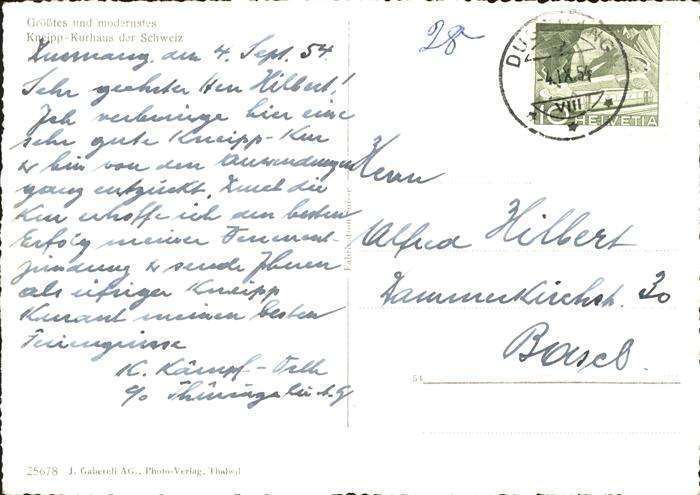 Größtes und modernstes
Kneipp-Kurhaus der Schweiz
Dussnang, den 4. Sept. 54.
Sehr geehrter Herr Hilbert!
Ich verbringe hier eine
sehr gute Kneipp-Kur
& bin von den Anwendungen
ganz entzückt. Durch die
Kur erhoffe ich den besten
Erfolg meiner Venenent-
zündung & sende Ihnen
als eifriger Kneipp
Kurant meinen besten
Feriengrüsse
K. Kämpf-
c/o
28
DUSSNANG
4.IX.54
VIII
10 HELVETIA
Herrn
Alfred Hilbert
Dammerkirchstr. 30
Basel.
54
25678 J. Gaberell AG., Photo-Verlag, Thalwil